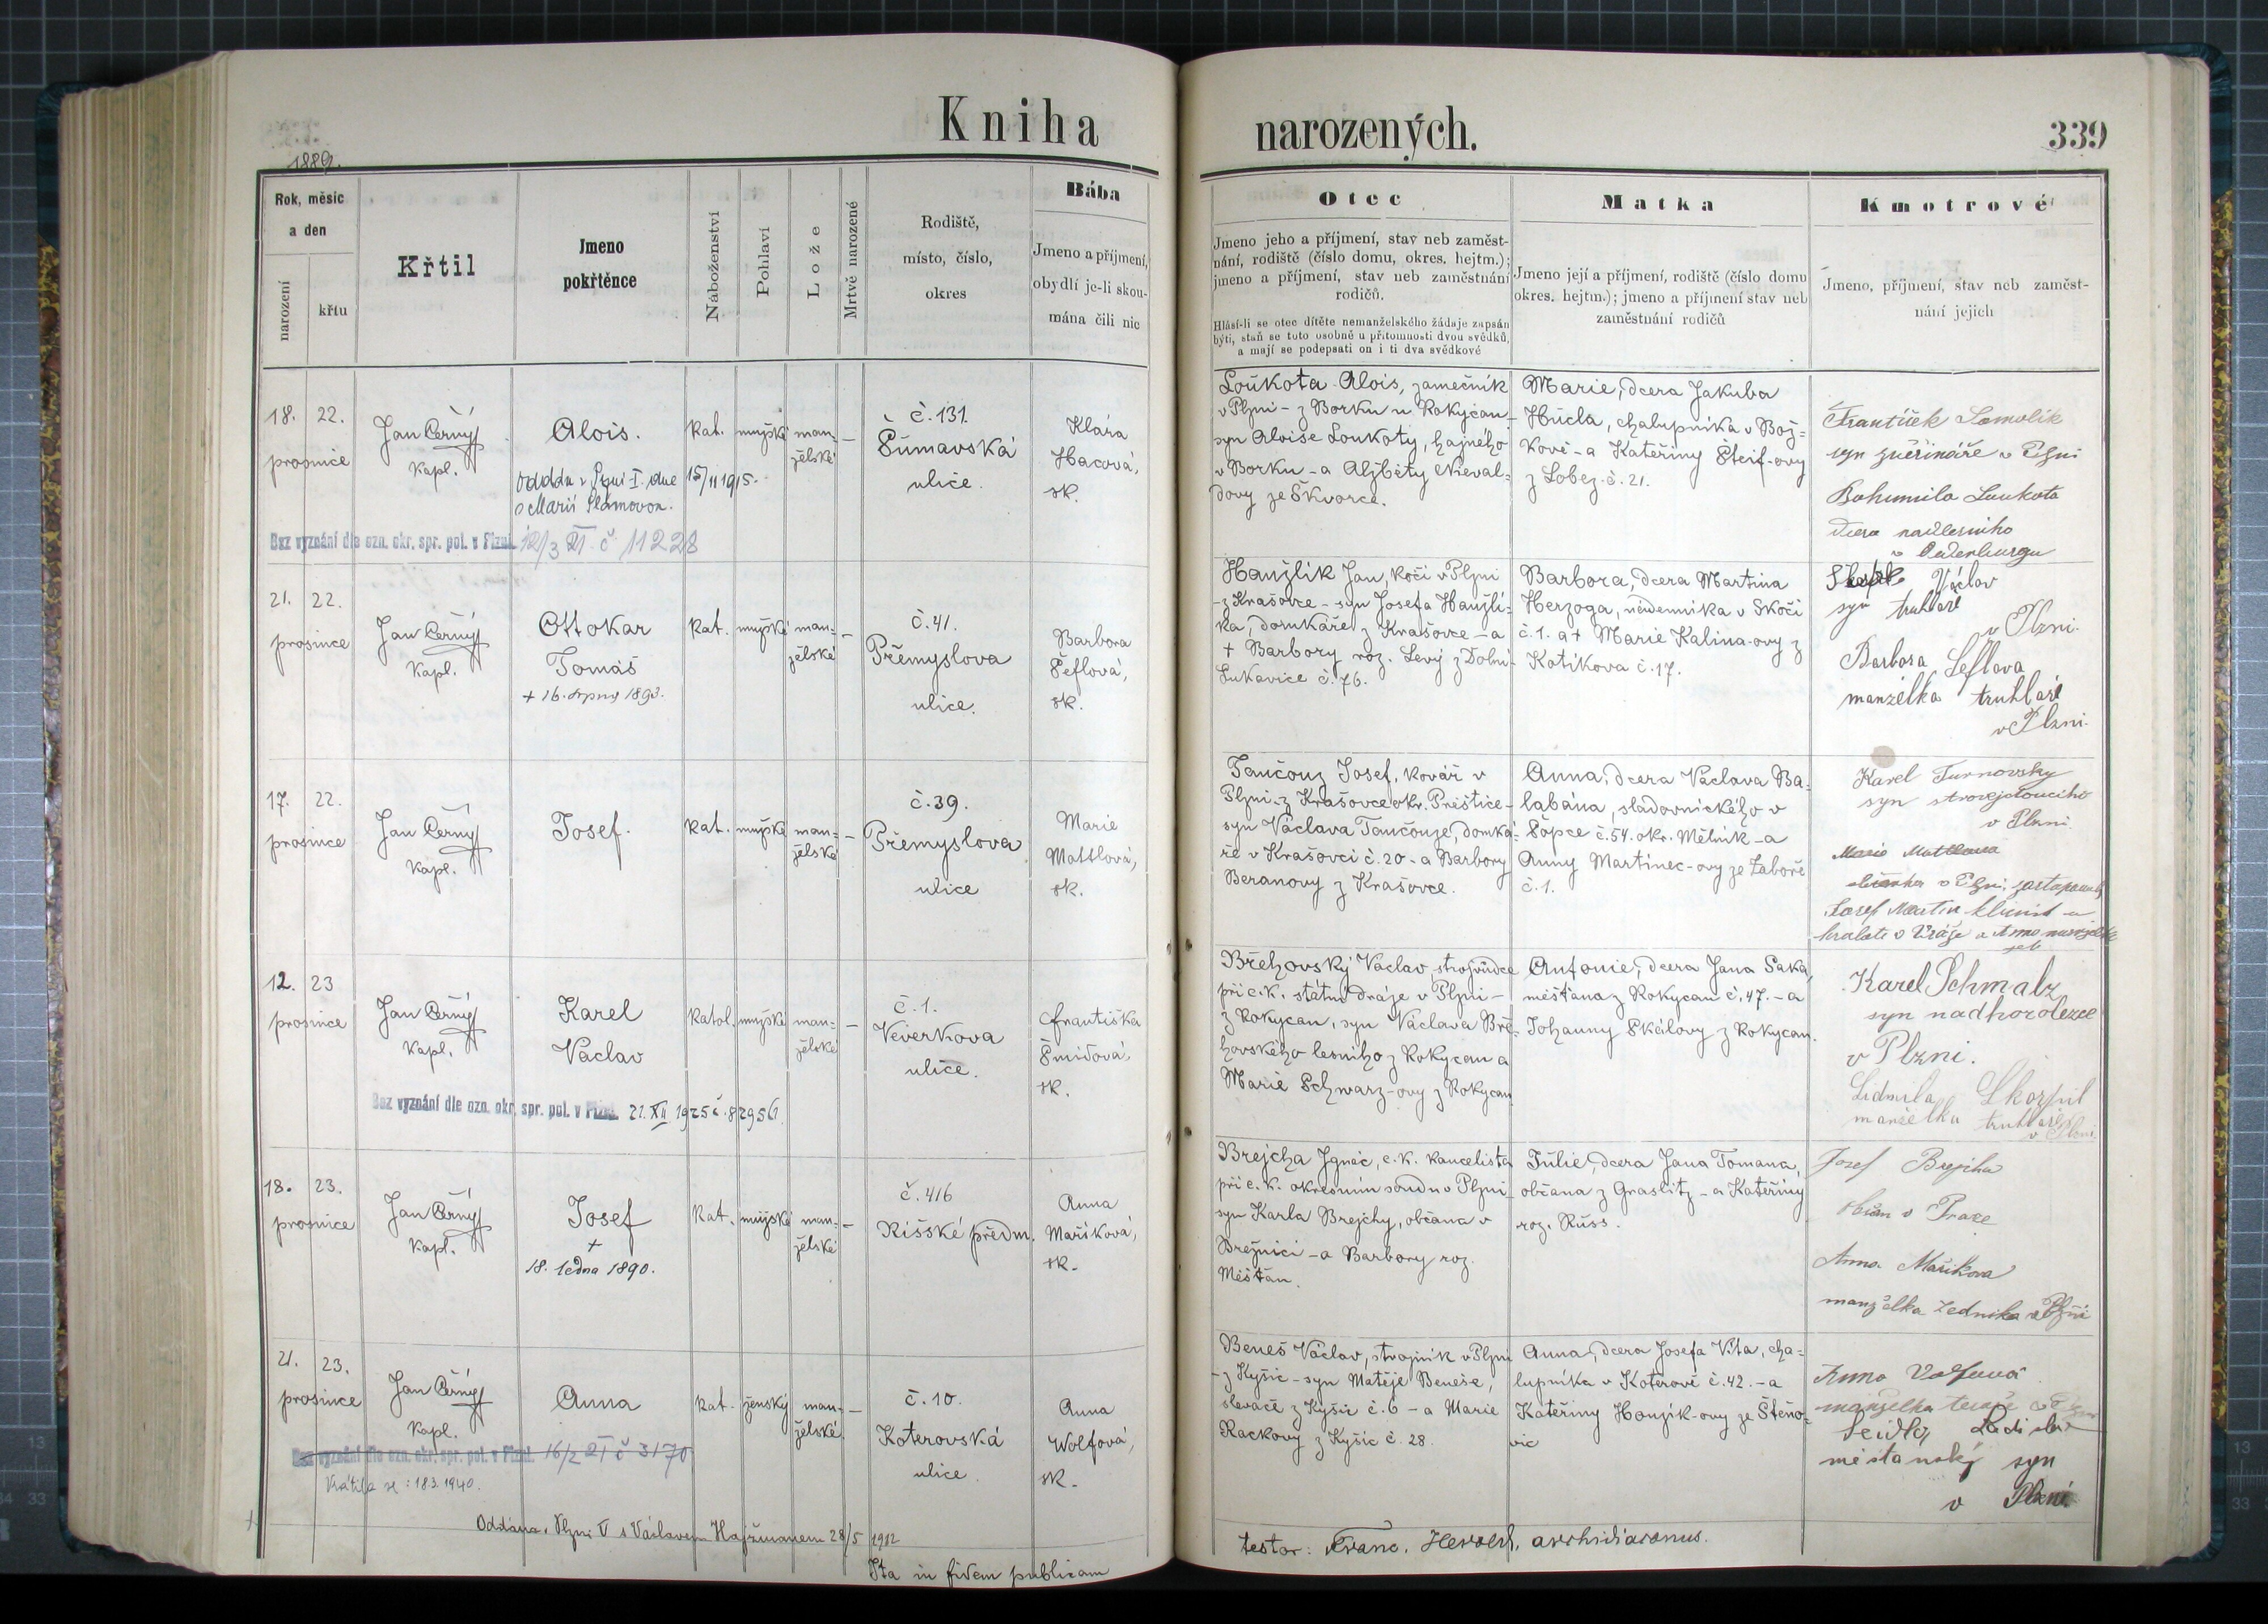 Kniha
narozených.
339
1889.
Rok, měsíc
a den
narození
křtu
Křtil
Jmeno
pokřtěnce
Náboženství
Pohlaví
Lože
Mrtvě narozené
Rodiště,
místo, číslo,
okres
Bába
Jmeno a příjmení,
obydlí je-li skou-
mána čili nic
Otec
Jmeno jeho a příjmení, stav neb zaměst-
nání, rodiště (číslo domu, okres. hejtm.);
jmeno a příjmení, stav neb zaměstnání
rodičů.
Hlásí-li se otec dítěte nemanželského žádaje zapsán
býti, staň se toto osobně u přítomnosti dvou svědků,
a mají se podepsati on i ti dva svědkové
Matka
Jmeno její a příjmení, rodiště (číslo domu
okres. hejtm.); jmeno a příjmení stav neb
zaměstnání rodičů
Kmotrové
Jmeno, příjmení, stav neb zaměst-
nání jejich
18. 22.
prosince
Jan Černý
Kapl.
Alois.
oddán v Plzni I. dne 15/11 1915.
s Marií
Kat. mužské man-
želské
–
č. 131.
Šumavská
ulice.
Klára
Hacová,
sk.
Loukota Alois, zámečník
v Plzni – z Borku u Rokycan –
syn Aloise Loukoty, hajného
v Borku – a Alžběty Nieval-
dovy ze Škvorce.
Marie, dcera Jakuba
Hucla, chalupníka v Bož-
kově – a Kateřiny Šteif-ovy
z Lobez č. 21.
František Samolík
syn v Plzni
Bohumila Loukota
dcera nadlesního
v
Bez vyznání dle ozn. okr. spr. pol. v Plzni 12/3 21 č 11228
21. 22.
prosince
Jan Černý
Kapl.
Ottokar
Tomáš
+ 16. srpna 1893.
Kat. mužské man-
želské
–
č. 41.
Přemyslova
ulice.
Barbora
Šeflová,
sk.
Hanzlík Jan, kočí v Plzni
– z Krašovce – syn Josefa Hanzlí-
ka, domkáře z Krašovce – a
+ Barbory roz. Levý z Dolní
Lukavice č. 76.
Barbora, dcera Martina
Herzoga, nádenníka v Skočí
č. 1. a + Marie Kalina-ovy z
Kotíkova č. 17.
Václav
syn truhláře
v Plzni.
Barbora Šeflova
manželka truhláře
v Plzni.
17. 22.
prosince
Jan Černý
Kapl.
Josef.
Kat. mužské man-
želské
–
č. 39.
Přemyslova
ulice
Marie
Mattlová,
sk.
Tančouz Josef, kovář v
Plzni – z Krašovce okr. Přeštice –
syn Václava Tančouze, domká-
ře v Krašovci č. 20 – a Barbory
Beranovy z Krašovce.
Anna, dcera Václava Ba-
labána, sladovnického v
Šopce č. 54. okr. Mělník – a
Anny Martinec-ovy ze Zaboře
č. 1.
Karel Turnovsky
syn strojvedoucího
v Plzni
Marie Mattlova
v Plzni,
Josef Martin
12. 23
prosince
Jan Černý
Kapl.
Karel
Vaclav
Katol. mužské man-
želské
–
č. 1.
Veverkova
ulice.
Františka
Šmídová,
sk.
Břehovský Vaclav, strojvůdce
při c. k. státní dráze v Plzni –
z Rokycan, syn Václava Bře-
hovského lesního z Rokycan a
Marie Schwarz-ovy z Rokycan
Antonie, dcera Jana Saka,
měšťana z Rokycan č. 47. – a
Johanny Skálovy z Rokycan.
Karel Schmalz
syn
v Plzni.
Lidmila Skorpil
manželka truhláře
v Plzni.
Bez vyznání dle ozn. okr. spr. pol. v Plzni 21. XII 1925 č. 82956
18. 23.
prosince
Jan Černý
Kapl.
Josef
+
18. ledna 1890.
Kat. mužské man-
želské
–
č. 416
Říšské předm.
Anna
Maříková,
sk.
Brejcha Ignác, c. k. kancelista
při c. k. okresním soudu v Plzni
syn Karla Brejchy, občana v
Březnici – a Barbory roz.
Měšťan.
Julie, dcera Jana Tomana,
občana z Graslitz – a Kateřiny
roz. Russ.
Josef Brejcha
v Praze
Anna Maříkova
manželka zedníka v Plzni
21. 23.
prosince
Jan Černý
Kapl.
Anna
Kat. ženský man-
želské
–
č. 10.
Koterovská
ulice.
Anna
Wolfová,
sk.
Beneš Václav, strojník v Plzni
– z Kyšic – syn Matěje Beneše,
slevače z Kyšic č. 6 – a Marie
Rackovy z Kyšic č. 28.
Anna, dcera Josefa Víta, cha-
lupníka v Koterově č. 42. – a
Kateřiny Honzík-ovy ze Štěno-
vic
Anna Volfová
manželka
Seidl
měšťanský syn
v Plzni.
Bez vyznání dle ozn. okr. spr. pol. v Plzni 16/2 21 č 3170
Vrátila se: 18.3.1940.
Oddána v Plzni V s Václavem 28/5 1912
Ita in fidem publicam
testor: Franc. Herold, archidiaconus.